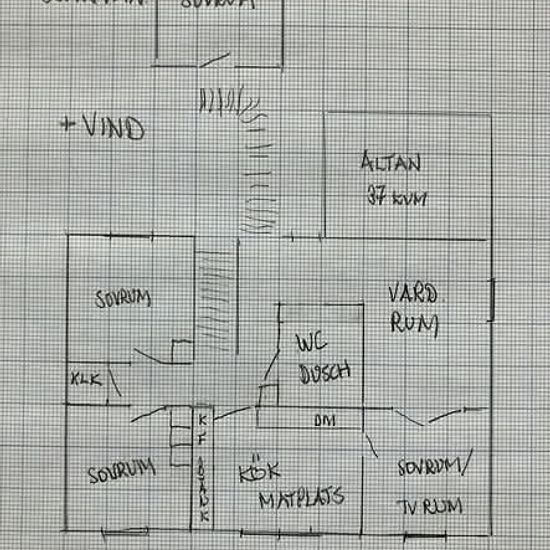 SOVRUM
+ VIND
ALTAN
37 KVM
SOVRUM
VARD.
RUM
WC
DUSCH
KLK
DM
K
F
BÄNK
SOVRUM
KÖK
MATPLATS
SOVRUM/
TV RUM